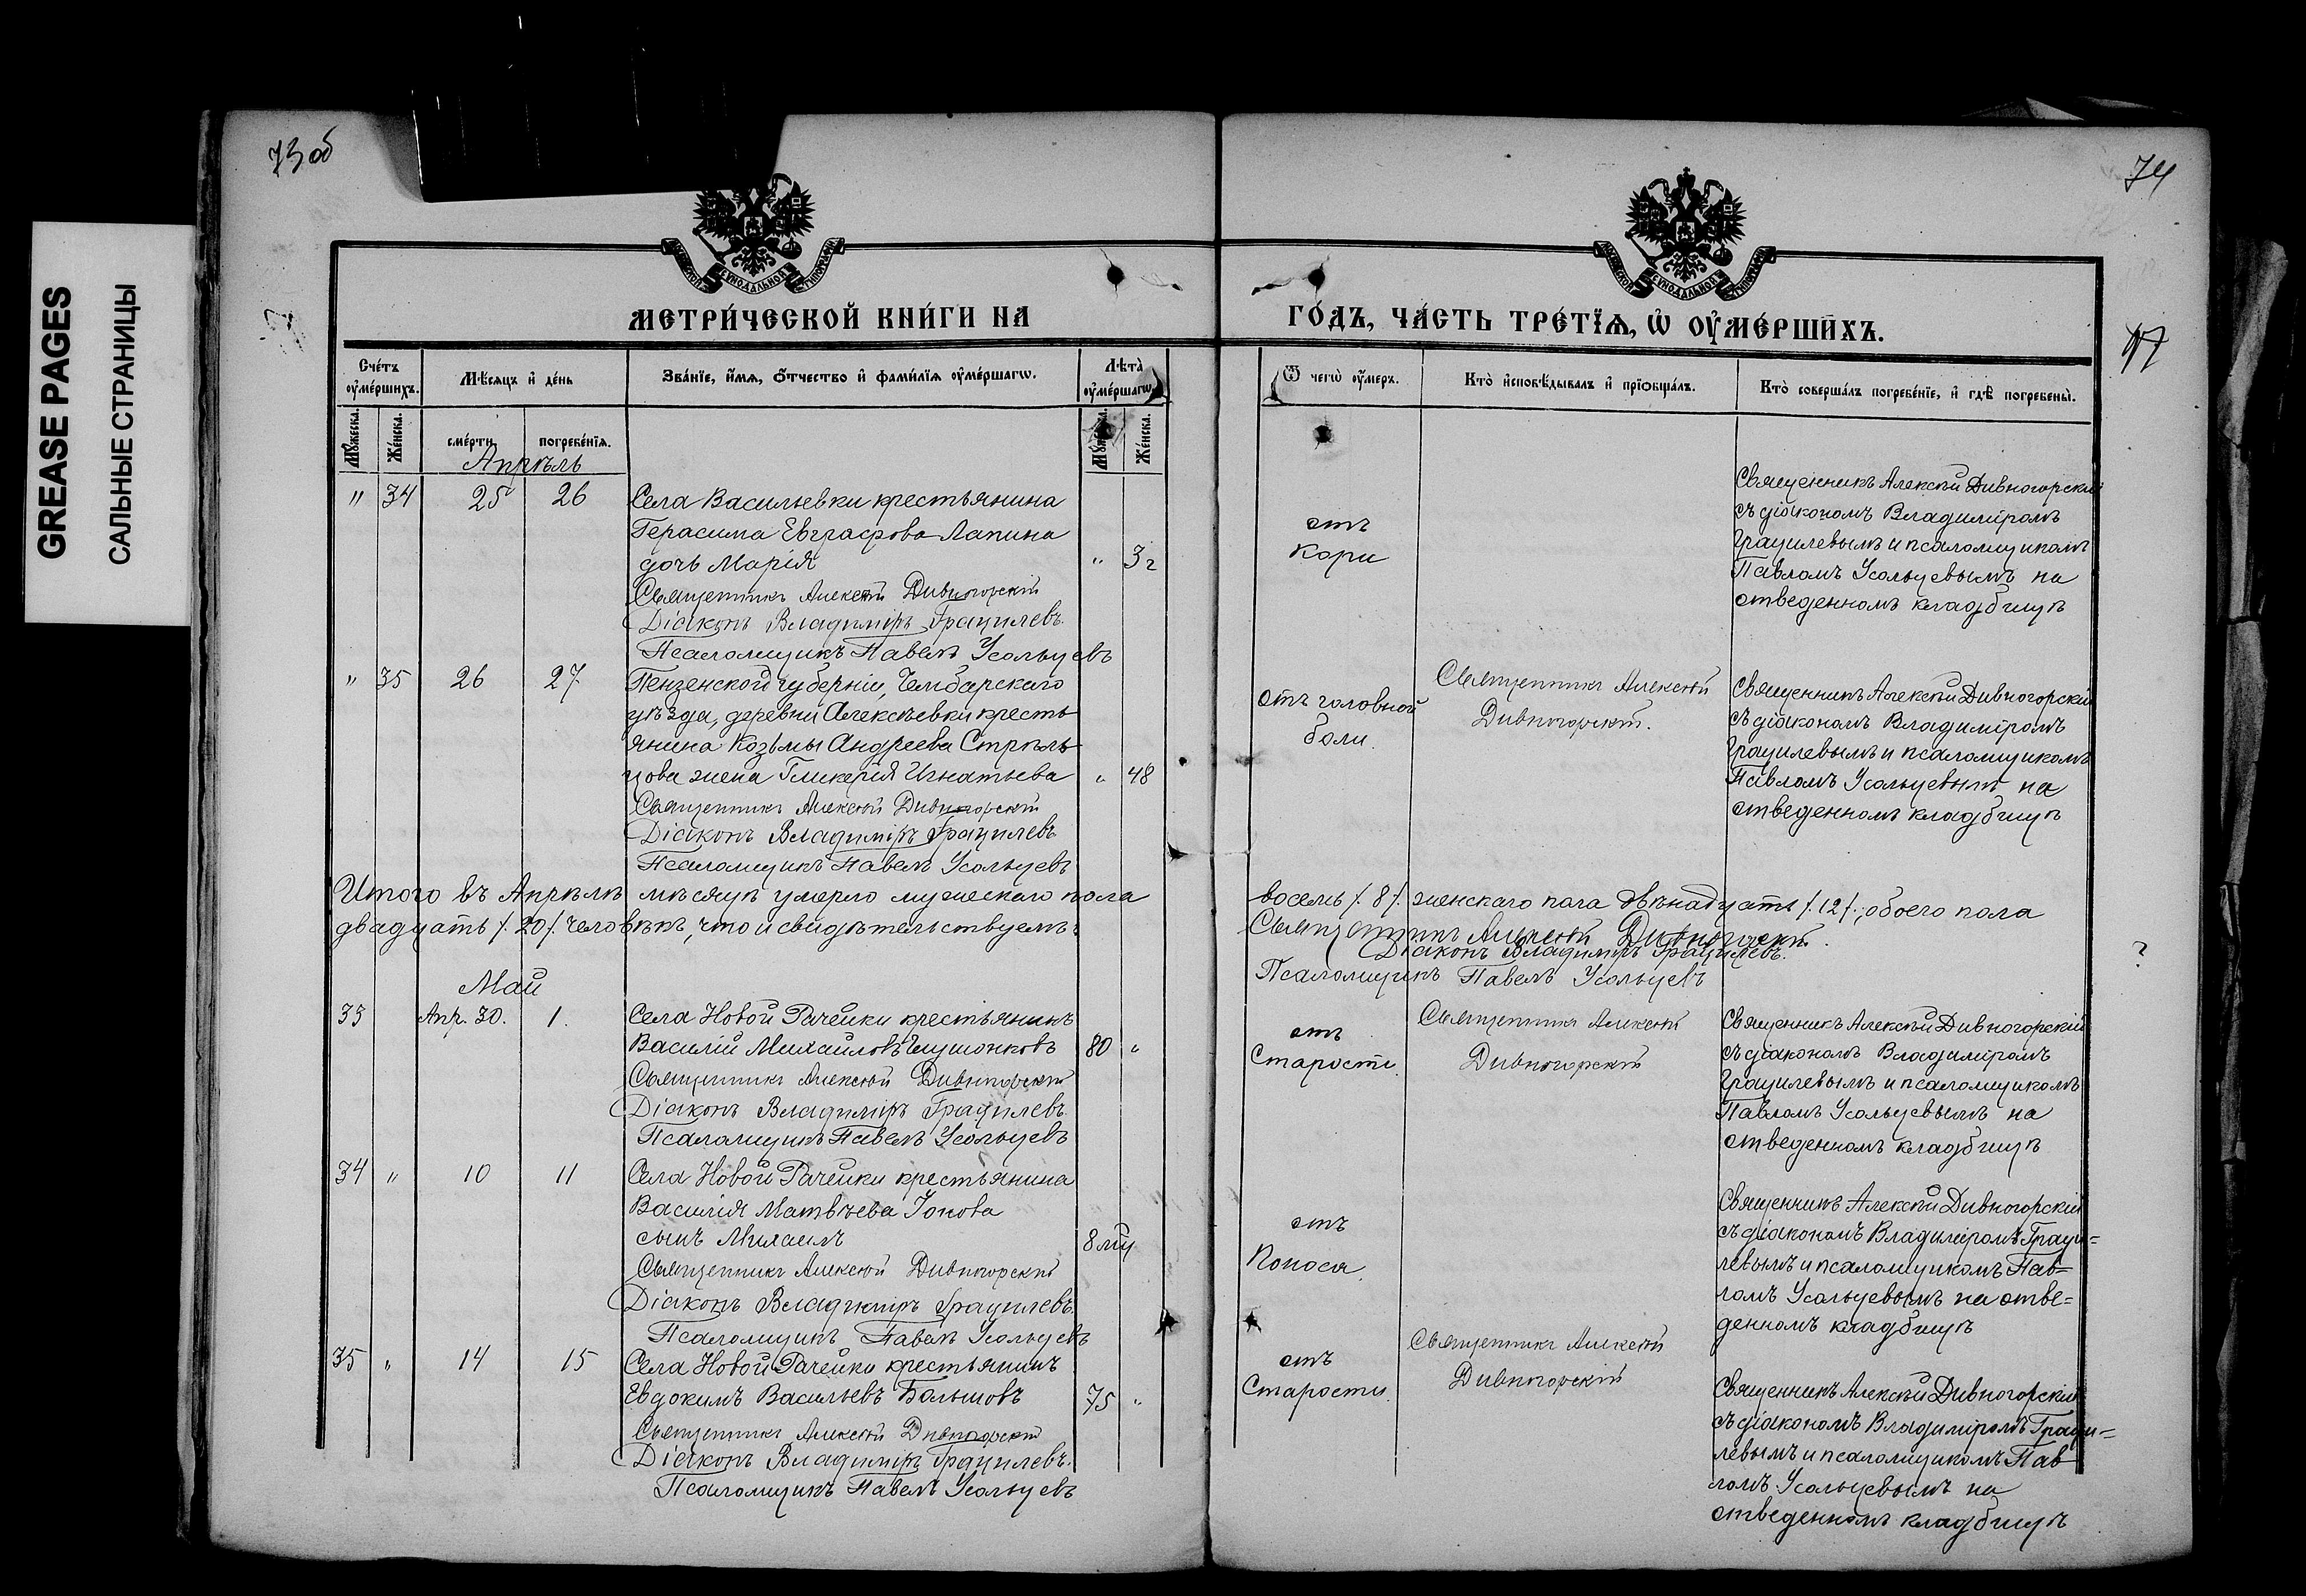 GREASE PAGES
САЛЬНЫЕ СТРАНИЦЫ
73 об
МЕТРИ́ЧЕСКОЙ КНИ́ГИ НА
Сче́тъ оу҆ме́ршихъ.
Мѣсяцъ и҆ де́нь
Зва́нїе, и҆́мѧ, ѻ҆́тчество и҆ фами́лїѧ оу҆ме́ршагѡ.
Лѣта̀ оу҆ме́ршагѡ
Мꙋ́жеска.
Же́нска.
сме́рти
погребе́нїѧ.
Же́нска.
Апрѣль
" 34 25 26 Села Васильевки крестьянина
Герасима Евграфова Лапина
дочь Марія " 3 г
Священникъ Алексѣй Дивногорскій
Діаконъ Владиміръ Грацилевъ.
Псаломщикъ Павелъ Усольцевъ
" 35 26 27 Пензенской губерніи, Чембарскаго
уѣзда, деревни Алексѣевки кресть
янина Козьмы Андреева Стрѣль
цова жена Гликерія Игнатьева " 48
Священникъ Алексѣй Дивногорскій
Діаконъ Владиміръ Грацилевъ
Псаломщикъ Павелъ Усольцевъ
Итого въ Апрѣлѣ мѣсяцѣ умерло мужескаго пола
двадцать /. 20 /. человѣкъ, что и свидѣтельствуемъ:
Май
33 Апр. 30. 1. Села Новой Рачейки крестьянинъ
Василій Михайловъ 80 "
Священникъ Алексѣй Дивногорскій
Діаконъ Владиміръ Грацилевъ.
Псаломщикъ Павелъ Усольцевъ
34 " 10 11 Села Новой Рачейки крестьянина
Василія Матвѣева Іонова
сынъ Михаилъ 8 мц
Священникъ Алексѣй Дивногорскій
Діаконъ Владиміръ Грацилевъ.
Псаломщикъ Павелъ Усольцевъ
35 " 14 15 Села Новой Рачейки крестьянинъ
Евдокимъ Васильевъ Большовъ 75 "
Священникъ Алексѣй Дивногорскій
Діаконъ Владиміръ Грацилевъ.
Псаломщикъ Павелъ Усольцевъ
74
ГО́ДЪ, ЧА́СТЬ ТРЕ́ТЇѦ, Ѡ҆ ОУ҆МЕ́РШИХЪ.
Ѿ чегѡ̀ оу҆́меръ.
Кто̀ и҆сповѣ́дывалъ и҆ прїѡбща́лъ.
Кто̀ соверша́лъ погребе́нїе, и҆ гдѣ̀ погребены̀.
отъ
Кори
Священникъ Алексѣй Дивногорскій
съ діакономъ Владиміромъ
Грацилевымъ и псаломщикомъ
Павломъ Усольцевымъ на
отведенномъ кладбищѣ
отъ головной
боли.
Священникъ Алексѣй
Дивногорскій.
Священникъ Алексѣй Дивногорскій
съ діакономъ Владиміромъ
Грацилевымъ и псаломщикомъ
Павломъ Усольцевымъ на
отведенномъ кладбищѣ
восемь /. 8 /. женскаго пола двѣнадцать /. 12 /., обоего пола
Священникъ Алексѣй Дивногорскій.
Діаконъ Владиміръ Грацилевъ.
Псаломщикъ Павелъ Усольцевъ
?
отъ
Старости.
Священникъ Алексѣй
Дивногорскій
Священникъ Алексѣй Дивногорскій
съ діакономъ Владиміромъ
Грацилевымъ и псаломщикомъ
Павломъ Усольцевымъ на
отведенномъ кладбищѣ
отъ
Поноса.
Священникъ Алексѣй Дивногорскій
съ діакономъ Владиміромъ Граци=
левымъ и псаломщикомъ Пав=
ломъ Усольцевымъ на отве=
денномъ кладбищѣ
отъ
Старости.
Священникъ Алексѣй
Дивногорскій
Священникъ Алексѣй Дивногорскій
съ діакономъ Владиміромъ Граци=
левымъ и псаломщикомъ Пав
ломъ Усольцевымъ на
отведенномъ кладбищѣ